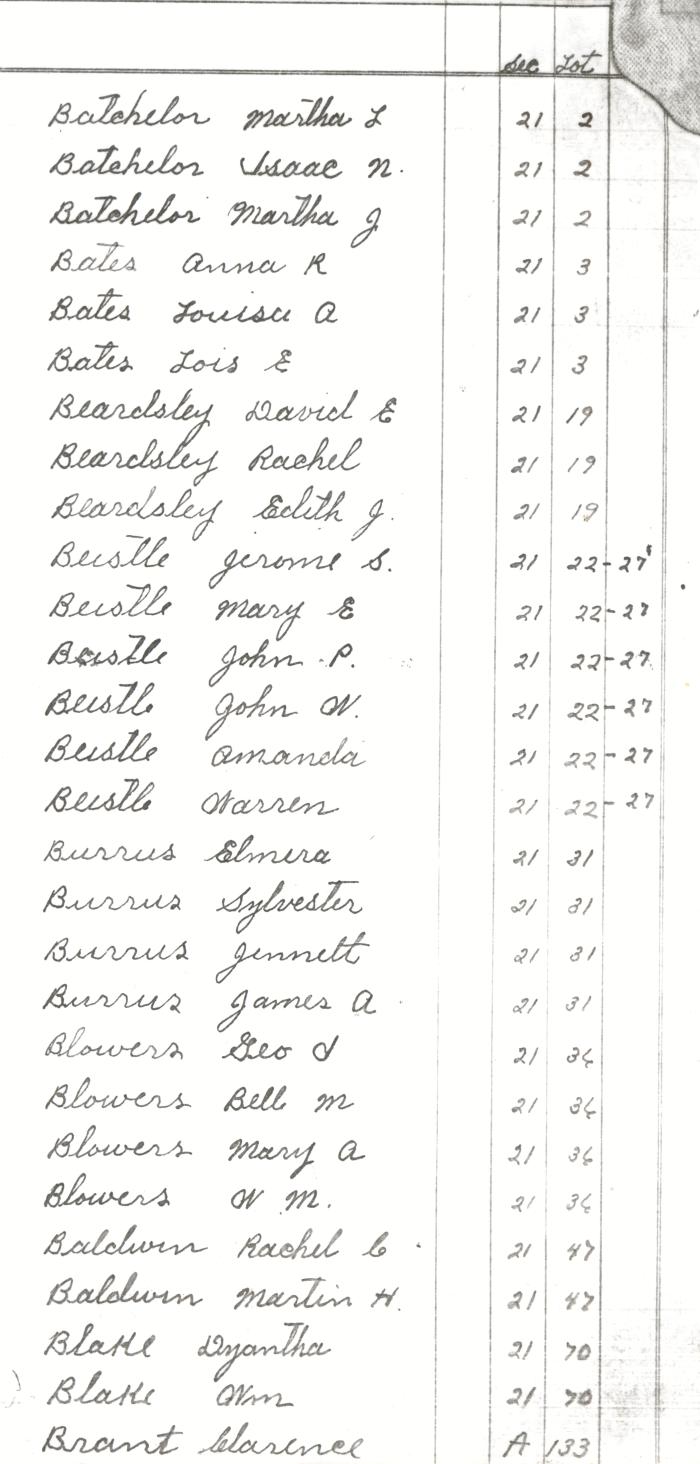 Sec Lot
Batchelor Martha L 21 2
Batchelor Isaac N. 21 2
Batchelor Martha J 21 2
Bates Anna R 21 3
Bates Louisa A 21 3
Bates Lois E 21 3
Beardsley David E 21 19
Beardsley Rachel 21 19
Beardsley Edith J. 21 19
Beistle Jerome S. 21 22-27
Beistle Mary E 21 22-27
Beistle John P. 21 22-27
Beistle John W. 21 22-27
Beistle Amanda 21 22-27
Beistle Warren 21 22-27
Burrus Elmera 21 31
Burrus Sylvester 21 31
Burrus Jennett 21 31
Burrus James A 21 31
Blowers Geo 21
Blowers Bell M 21
Blowers Mary A 21
Blowers W M. 21
Baldwin Rachel C 21 47
Baldwin Martin H. 21 47
Blake Dyantha 21 70
Blake Wm 21 70
Brant Clarence A 133